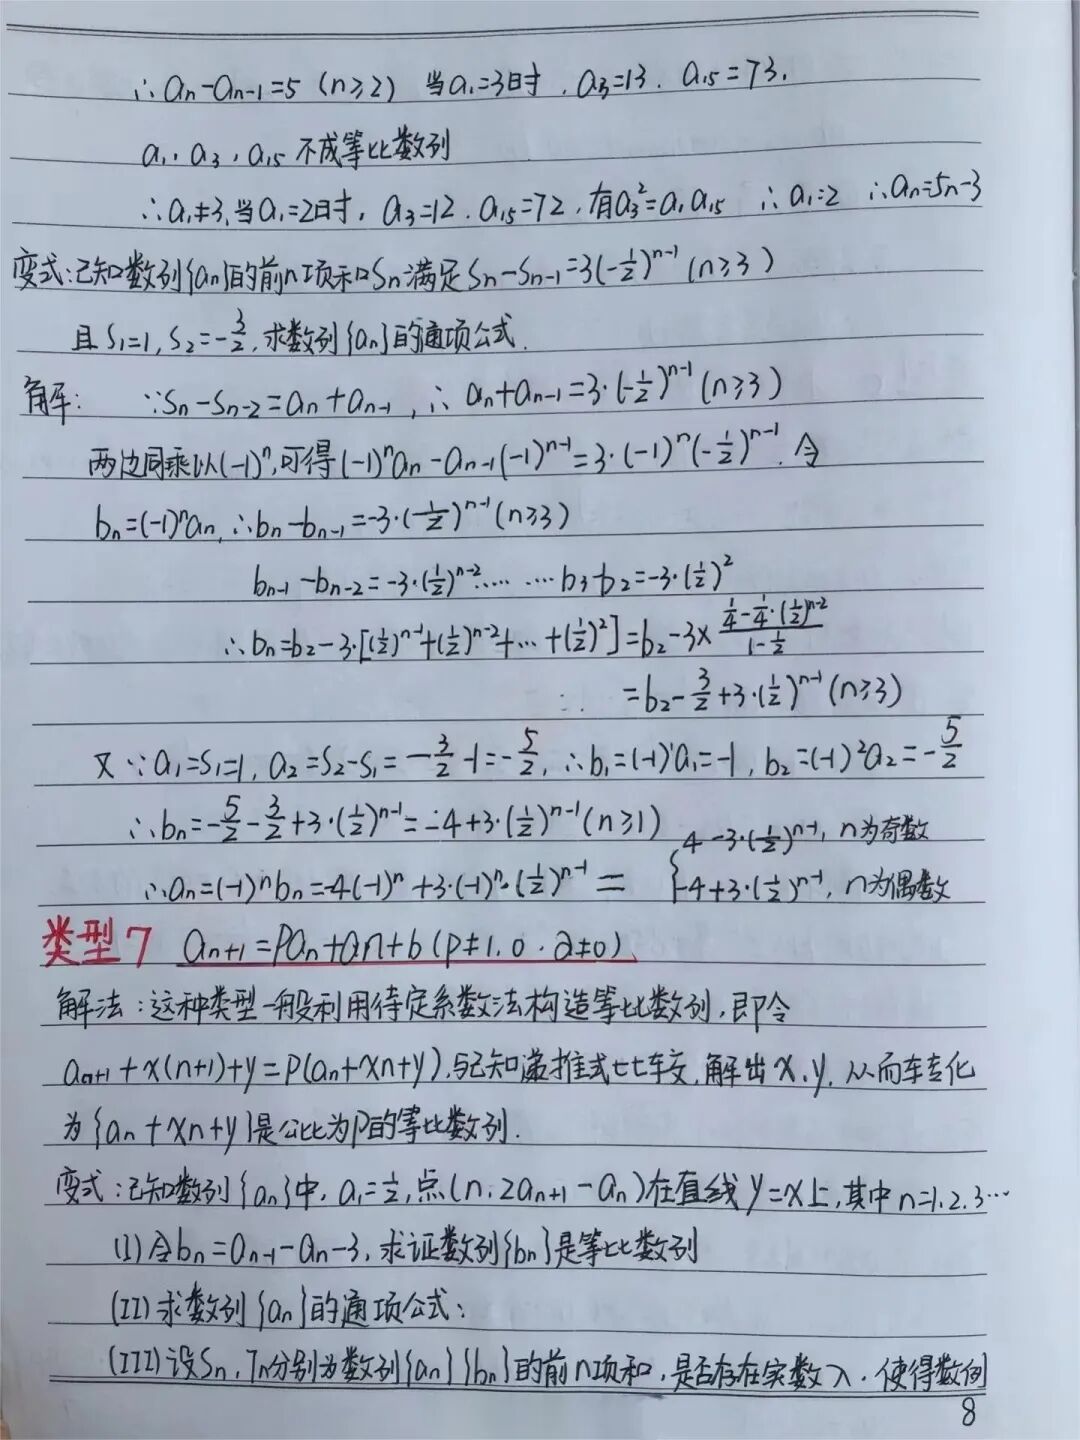 ∴an-an-1=5 (n≥2) 当a1=3时, a3=13. a15=73.
a1, a3, a15 不成等比数列
∴a1≠3,当a1=2时, a3=12. a15=72, 有a3²=a1a15 ∴a1=2 ∴an=5n-3
变式:已知数列{an}的前n项和Sn满足Sn-Sn-1=3(-1/2)^(n-1) (n≥3)
且S1=1, S2=-3/2, 求数列{an}的通项公式.
解: ∵Sn-Sn-2=an+an-1, ∴ an+an-1=3·(-1/2)^(n-1) (n≥3)
两边同乘以(-1)^n,可得(-1)^n an-an-1(-1)^(n-1)=3·(-1)^n(-1/2)^(n-1). 令
bn=(-1)^n an, ∴bn-bn-1=-3·(-1/2)^(n-1) (n≥3)
bn-1-bn-2=-3·(1/2)^(n-2)…… ……b3-b2=-3·(1/2)²
∴bn=b2-3·[(1/2)^(n-1)+(1/2)^(n-2)+…+(1/2)²]=b2-3×(1/4-1/4·(1/2)^(n-2))/(1-1/2)
=b2-3/2+3·(1/2)^(n-1) (n≥3)
又∵a1=S1=1, a2=S2-S1=-3/2-1=-5/2, ∴b1=(-1)'a1=-1, b2=(-1)²a2=-5/2
∴bn=-5/2-3/2+3·(1/2)^(n-1)=-4+3·(1/2)^(n-1) (n≥1)
∴an=(-1)^n bn=-4(-1)^n+3·(-1)^n·(1/2)^(n-1)= {4-3·(1/2)^(n-1), n为奇数
-4+3·(1/2)^(n-1), n为偶数
类型7 an+1=Pan+an+b (P≠1, 0, a≠0)
解法:这种类型一般利用待定系数法构造等比数列,即令
an+1+x(n+1)+y=P(an+xn+y),与已知递推式比较,解出x,y,从而转化
为{an+xn+y}是公比为P的等比数列.
变式:已知数列{an}中, a1=1/2,点(n, 2an+1-an)在直线y=x上,其中n=1,2,3…
(I)令bn=an-1-an-3, 求证数列{bn}是等比数列
(II)求数列{an}的通项公式;
(III)设Sn,Tn分别为数列{an}{bn}的前n项和,是否存在实数λ,使得数例
8